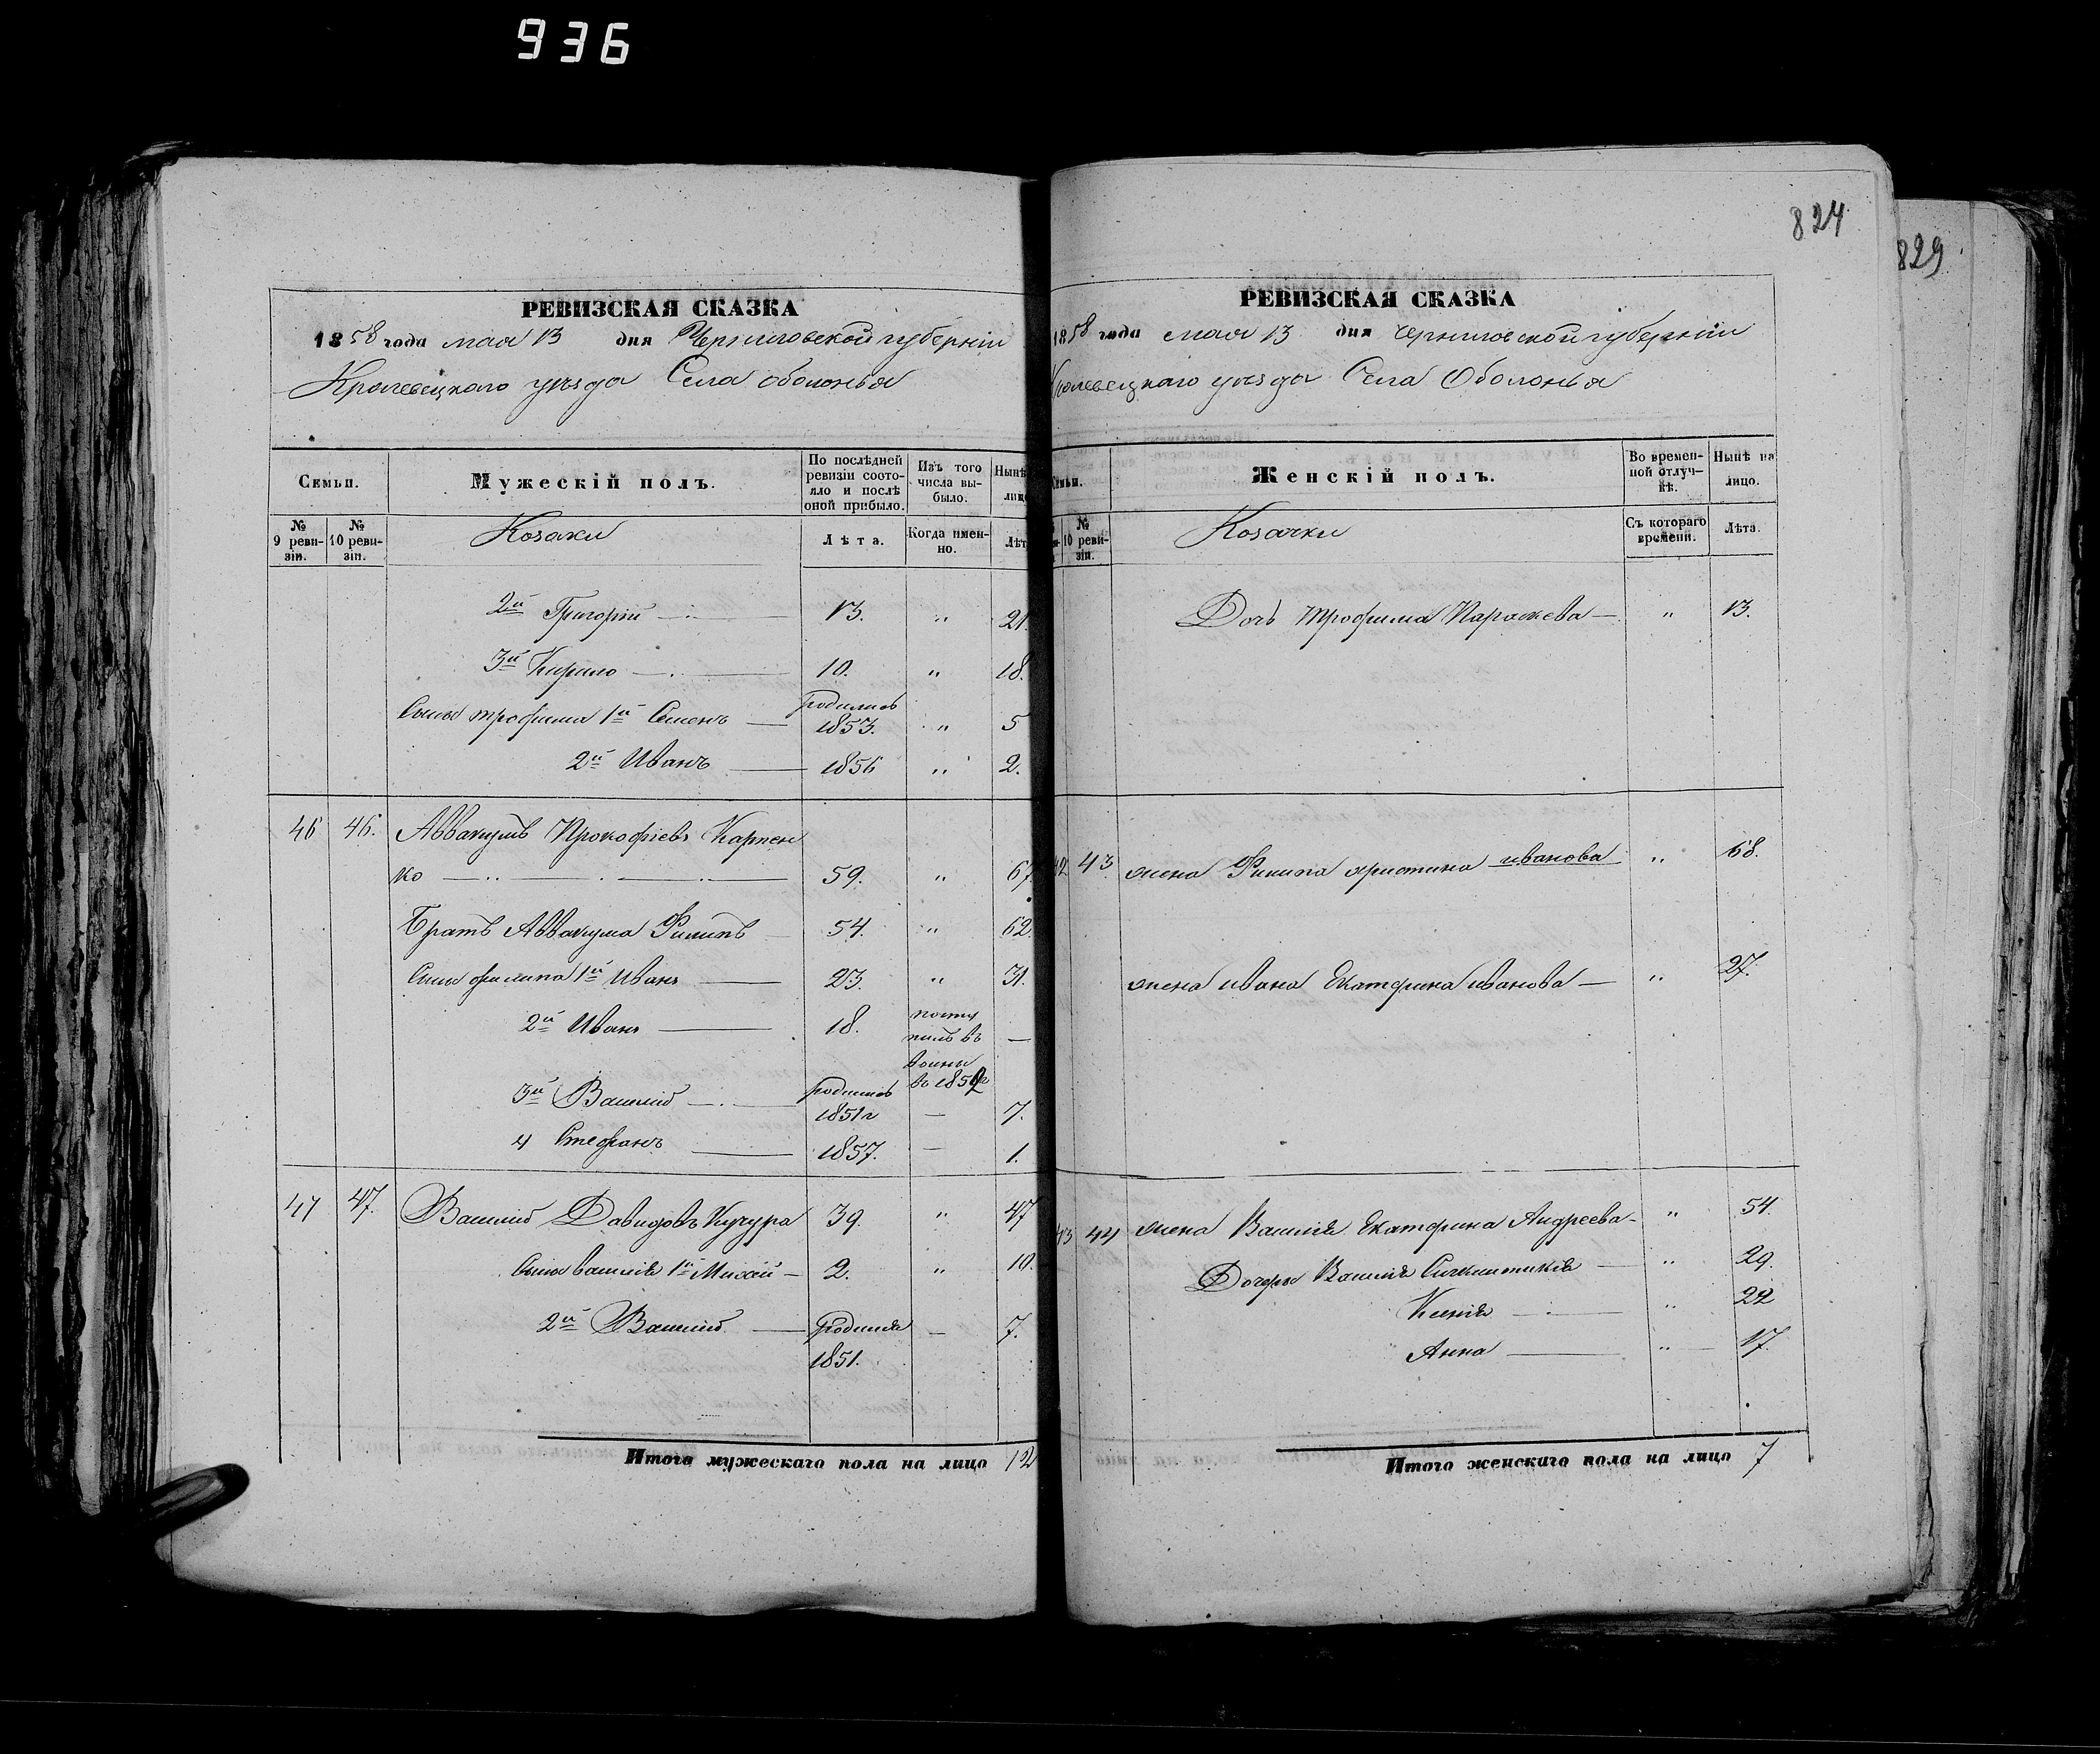 936
824
829
РЕВИЗСКАЯ СКАЗКА
1858 года мая 13 дня Черниговской губерніи
Кролевецкаго уѣзда Села оболонья
Семьи.
Мужескій полъ.
По послѣдней ревизіи состояло и послѣ оной прибыло.
Изъ того числа выбыло.
Нынѣ лицо
№ 9 ревизіи.
№ 10 ревизіи.
Козаки
Лѣта.
Когда именно.
Лѣт
2й Григорій — 13. " 21.
3й Кирило — 10. " 18.
Сыны трофима 1й Семенъ — родились 1853. " 5
2й Иванъ — 1856 " 2.
46 46. Аввакумъ Прокофіевъ Карпен
ко — 59. " 67
Братъ Аввакума Филипъ 54. " 62.
Сыны филипа 1й Иванъ — 23. " 31.
2й Иванъ — 18. посту
пилъ въ —
воины
во 1852
3й Василій — родились 1851г — 7.
4 Стефанъ — 1857. — 1.
47 47. Василій Давидовъ Кучура 39. " 47
Сыны василія 1й Михей — 2. " 10.
2й Василій — родился — 7.
1851.
Итого мужескаго пола на лицо 12
РЕВИЗСКАЯ СКАЗКА
1858 года мая 13 дня черниговской губерніи
Кролевецкаго уѣзда Села Оболонья
Семьи.
Женскій полъ.
Во временной отлучкѣ.
Нынѣ на лицо.
№ 10 ревизіи.
Козачки
Съ котораго времени.
Лѣта.
Дочь трофима Параскева — " 13.
42 43 жена Филипа христина иванова " 68.
жена ивана Екатерина иванова — " 27.
43 44 жена Василія Екатерина Андреева — " 54.
Дочери Василія — " 29.
Ксенія — " 22
Анна — " 17.
Итого женскаго пола на лицо 7